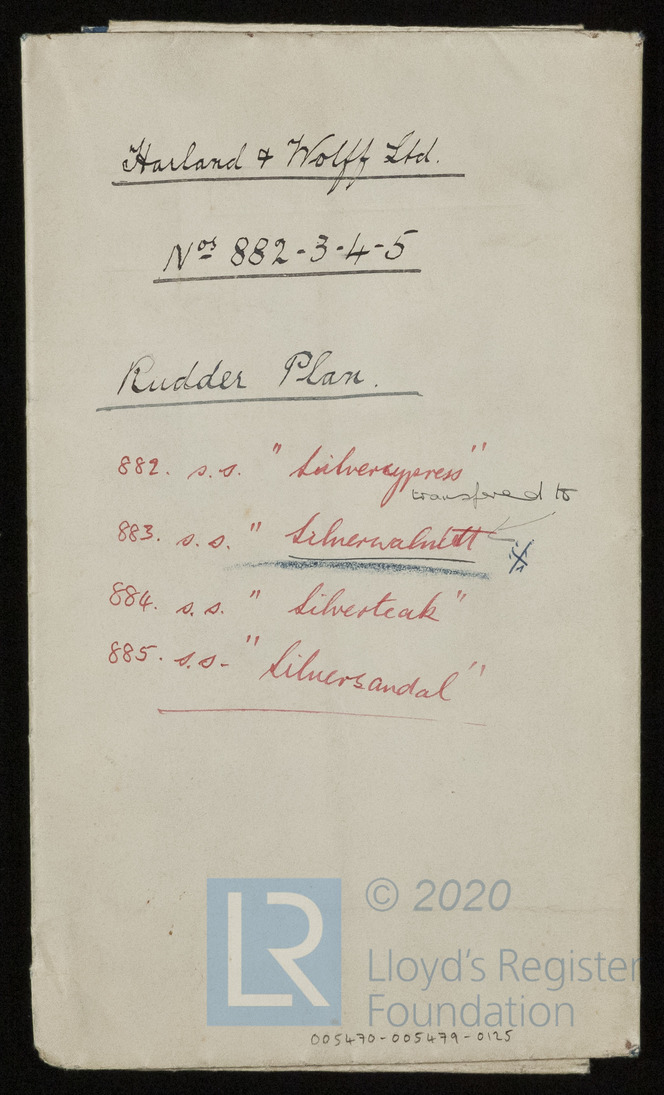 Harland & Wolff Ltd.
Nos 882-3-4-5
Rudder Plan.
882. s.s. "Silvercypress"
transfered to
883. s.s. "Silverwalnutt
884. s.s. "Silverteak"
885. s.s- "Silversandal"
LR
© 2020
Lloyd's Register
Foundation
005470-005479-0125